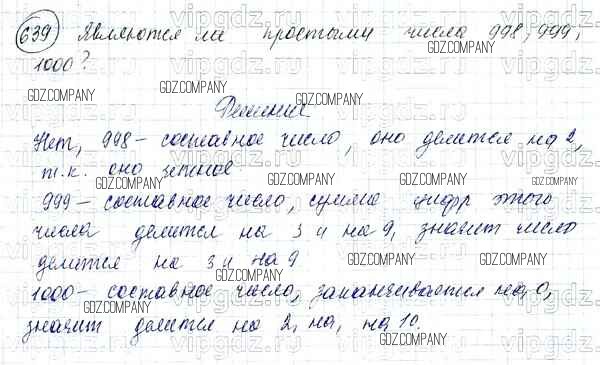 639 Являются ли простыми числа 998, 999,
1000?
Решение
Нет, 998 - составное число, оно делится на 2,
т.к. оно четное.
999 - составное число, сумма цифр этого
числа делится на 3 и на 9, значит число
делится на 3 и на 9
1000 - составное число, заканчивается на 0,
значит делится на 2, на, на 10.